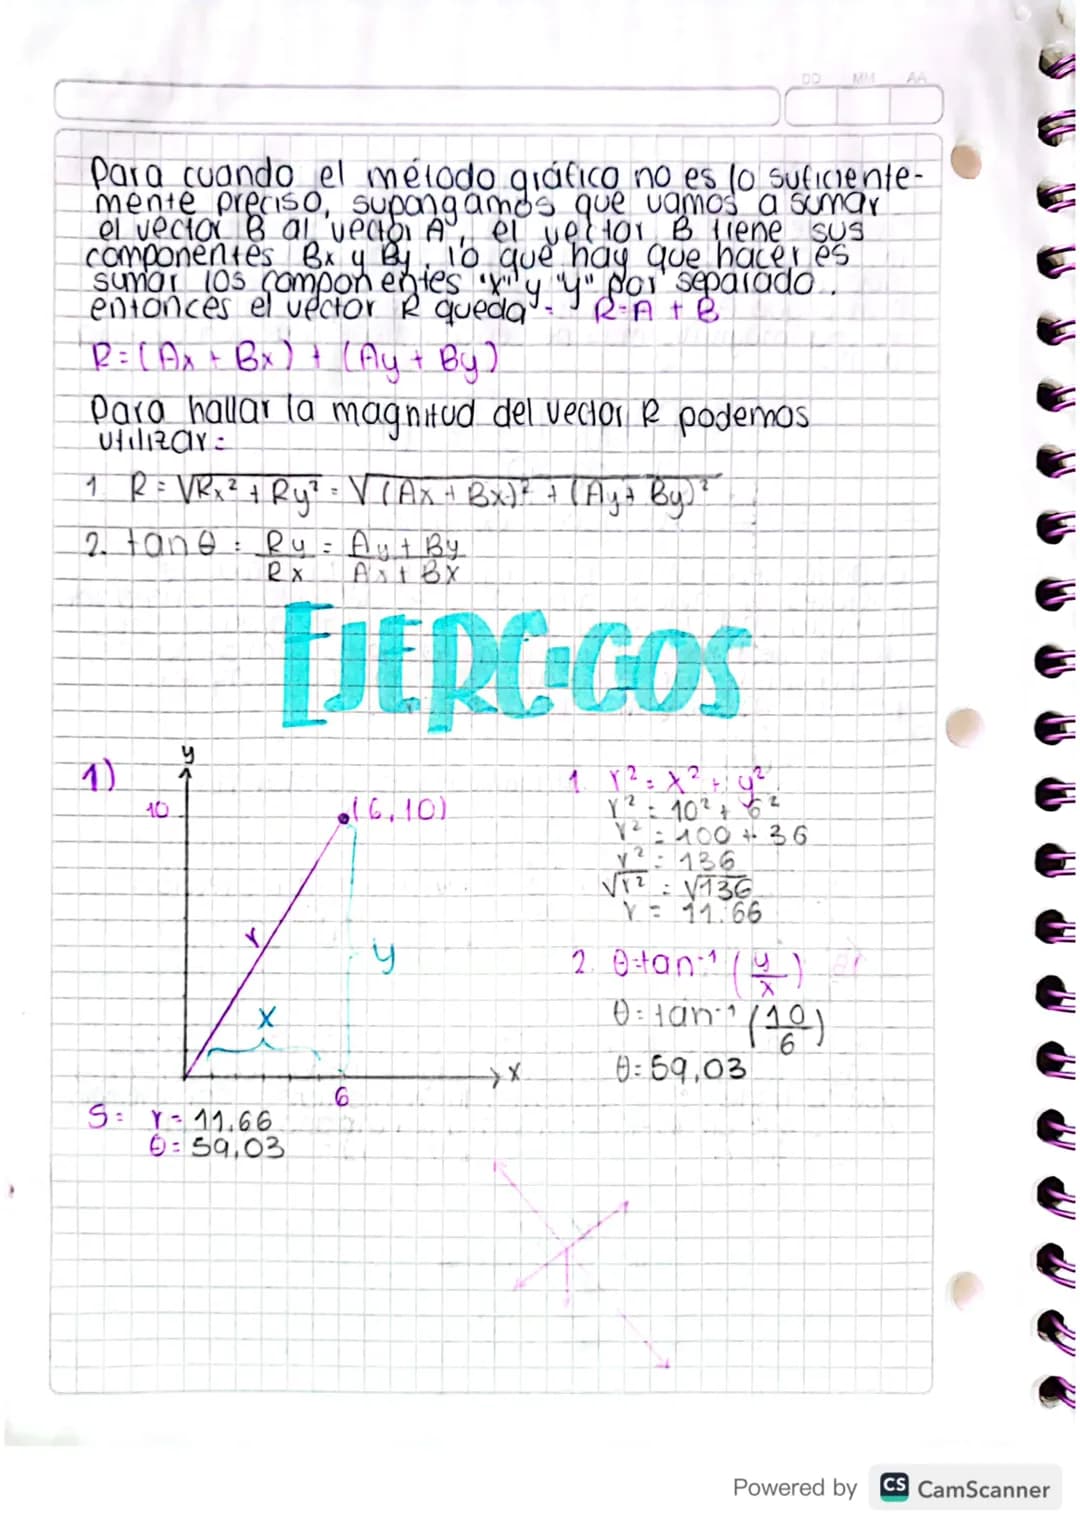 DD MM AA
Para cuando el método gráfico no es lo suficiente-
mente preciso, supongamos que vamos a sumar
el vector B al vector A, el vector B tiene sus
componentes Bx y By, lo que hay que hacer es
sumar los componentes "x" y "y" por separado.
entonces el vector R queda: R=A + B
R=(Ax + Bx) + (Ay + By)
Para hallar la magnitud del vector R podemos
utilizar:
1 R = √Rx² + Ry² = √(Ax + Bx)² + (Ay + By)²
2. tan θ = Ry/Rx = Ay + By/Ax + Bx
EJERCICIOS
1)
y
10
(6,10)
r
y
x
x
6
1. r² = x² + y²
r² = 10² + 6²
r² = 100 + 36
r² = 136
√r² = √136
r = 11.66
2. θ=tan-¹ (y/x)
θ=tan-¹ (10/6)
θ=59,03
S: r = 11,66
θ = 59,03
Powered by CS CamScanner